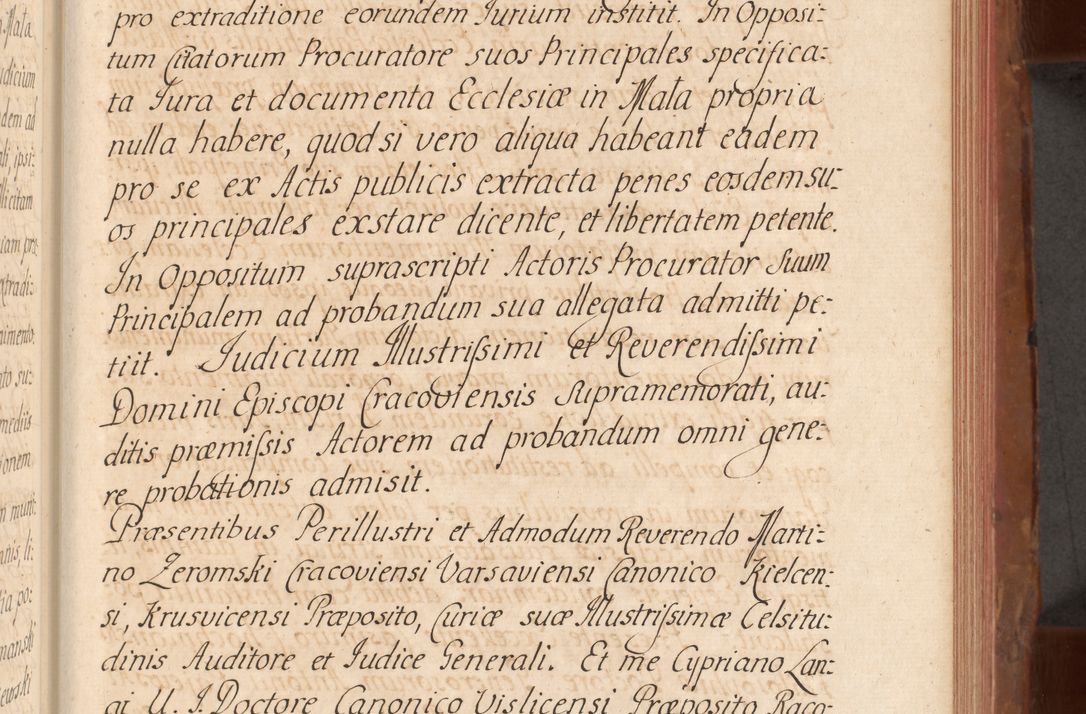 pro extraditione eorundem Jurium institit. In Opposi:
tum Citatorum Procuratore suos Principales specifica:
ta Jura et documenta Ecclesiæ in Mala propria
nulla habere, quodsi vero aliqua habeant eadem
pro se ex Actis publicis extracta penes eosdem su:
os principales exstare dicente, et libertatem petente.
In Oppositum suprascripti Actoris Procurator Suum
Principalem ad probandum sua allegata admitti pe:
tiit. Judicium Illustrissimi et Reverendissimi
Domini Episcopi Cracoviensis Supramemorati, au:
ditis præmissis Actorem ad probandum omni gene:
re probationis admisit.
Præsentibus Perillustri et Admodum Reverendo Marti:
no Zeromski Cracoviensi Varsaviensi Canonico Kielcen:
si, Krusvicensi Præposito, Curiæ suæ Illustrissimæ Celsitu:
dinis Auditore et Judice Generali. Et me Cypriano Lan:
gi U. J. Doctore Canonico Vislicensi Præposito Raco: